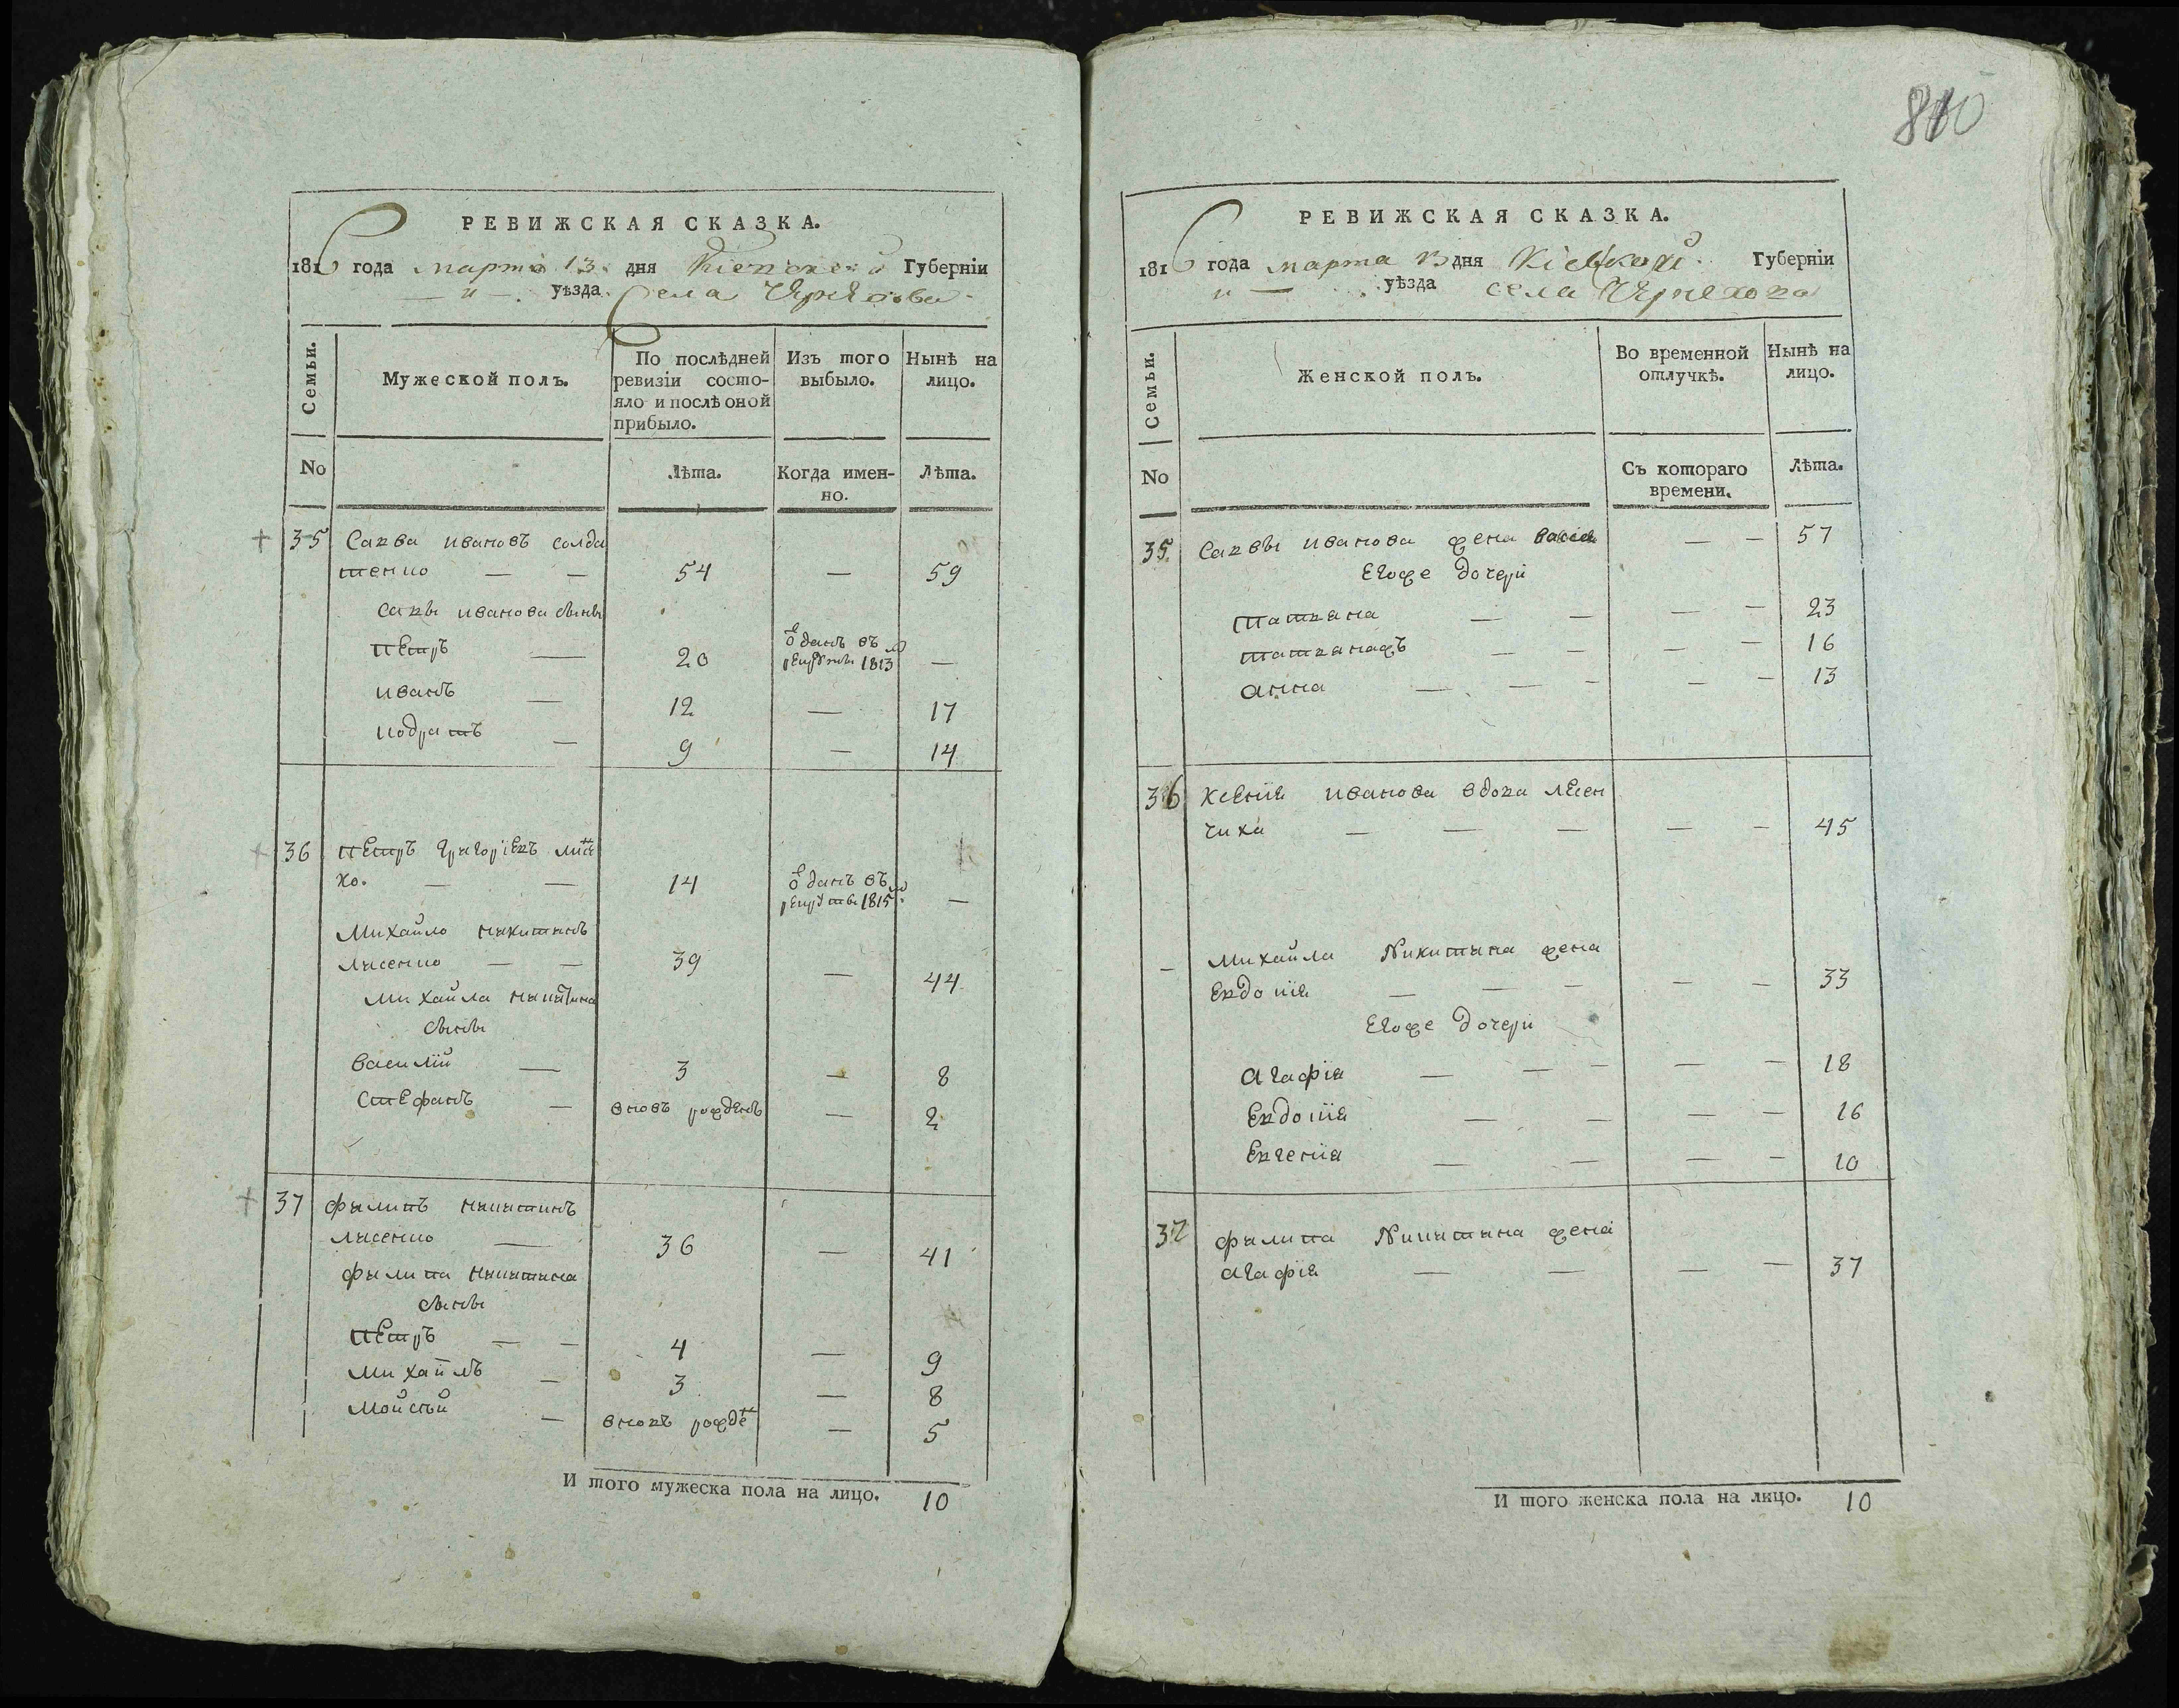 РЕВИЖСКАЯ СКАЗКА.
1816 года марта 13. дня Кіевской Губерніи
— „ — уѣзда. Села Чернехова
Семьи. Мужеской полъ. По послѣдней ревизіи состо- Изъ того выбыло. Нынѣ на лицо.
яло и послѣ оной
прибыло.
No Лѣта. Когда имен- Лѣта.
но.
35 Савва ивановъ солда
тенко — — 54 — 59
савы иванова сыны
петръ — 20 ѿданъ въ
рекруты 1813 —
иванъ — 12 — 17
кодратъ — 9 — 14
36 петръ григоріевъ лисе
ко. — — 14 ѿданъ въ
рекруты 1815 —
Михайло никитинъ
лисенко — — 39 — 44
михайла никитина
сыны
василій — 3 — 8
Стефанъ — вновь рожденъ — 2
37 филипъ никитинъ
лисенко — 36 — 41
филипа никитина
сыны
петръ — — 4 — 9
михаилъ — 3 — 8
мойсѣй — вновь рожде — 5
И того мужеска пола на лицо. 10
810
РЕВИЖСКАЯ СКАЗКА.
1816 года марта 13 дня Кіевской Губерніи
„ — уѣзда села Чернехова
Семьи. Женской полъ. Во временной Нынѣ на
отлучкѣ. лицо.
No Съ котораго Лѣта.
времени.
35. Саввы иванова жена — — 57
Егоже дочери
татияна — — — — 23
татиянажъ — — — — 16
анна — — — — — 13
36 ксенія иванова вдова лисен
чиха — — — — — 45
— михайла Никитина жена
Евдокія — — — — — 33
Егоже дочери
агафія — — — — — 18
Евдокія — — — — 16
Евгенія — — — — 10
37 филипа Никитина жена
агафія — — — — 37
И того женска пола на лицо. 10